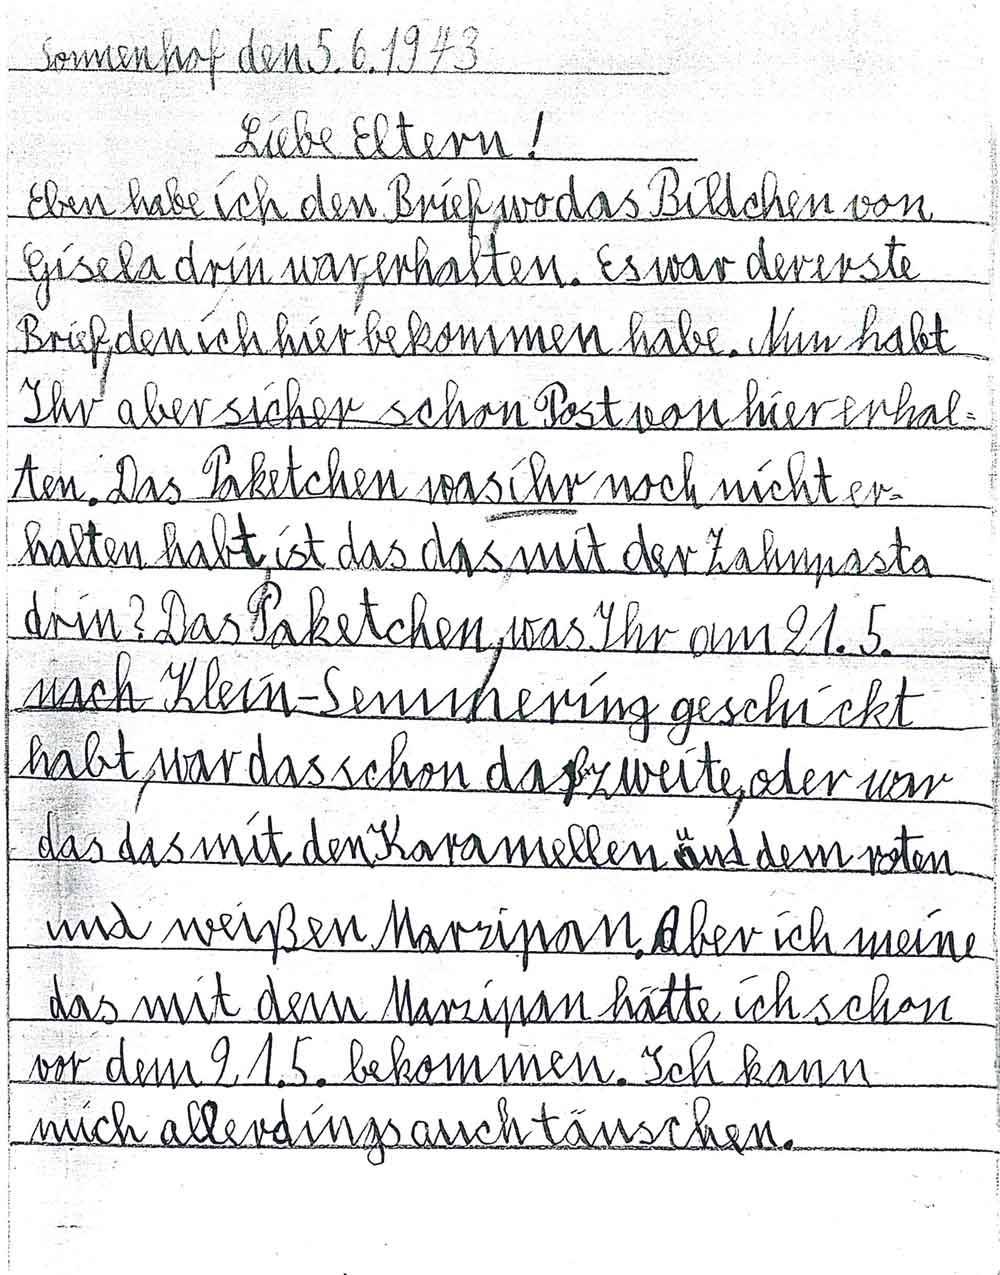 Sonnenhof den 5.6.1943
Liebe Eltern!
Eben habe ich den Brief, wo das Bildchen von
Gisela drin war, erhalten. Es war der erste
Brief, den ich hier bekommen habe. Nun habt
Ihr aber sicher schon Post von hier erhal=
ten. Das Paketchen was ihr noch nicht er=
halten habt, ist das das mit der Zahnpasta
drin? Das Paketchen, was Ihr am 21.5.
nach Klein-Semmering geschickt
habt, war das schon das zweite, oder war
das das mit den Karamellen und dem roten
und weißen Marzipan. Aber ich meine
das mit dem Marzipan hätte ich schon
vor dem 21.5. bekommen. Ich kann
mich allerdings auch täuschen.